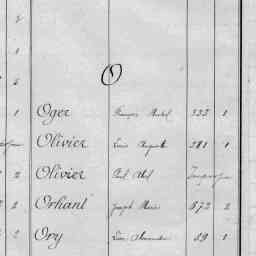 2
1
2
O
1 Oger François Michel 333 1
1 Olivier Louis Auguste 281 1
2 Olivier Paul Abel
2 Orhant Joseph Marie 672 2
2 Ory Léon Alexandre 59 1